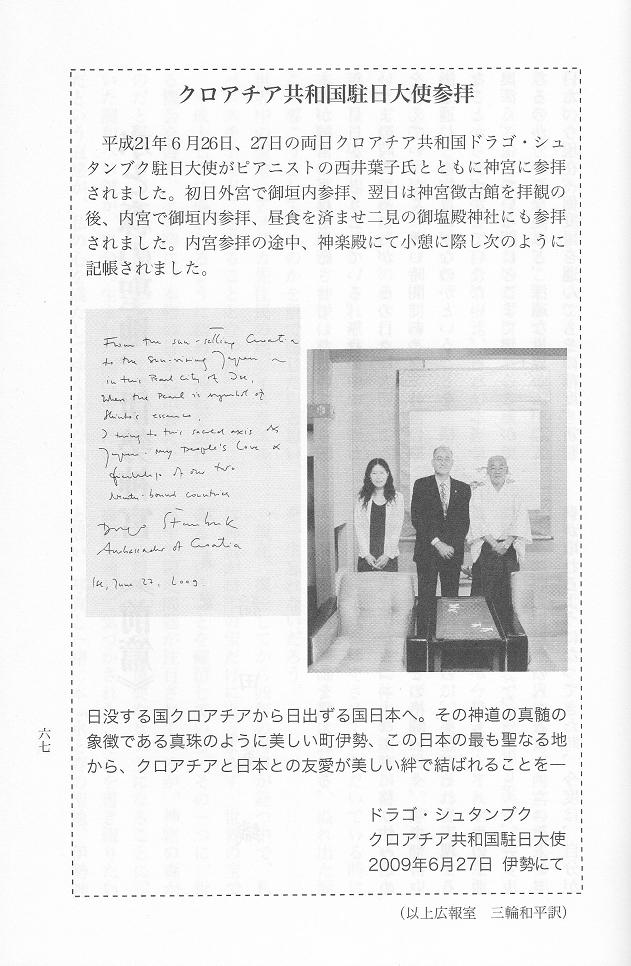 クロアチア共和国駐日大使参拝
平成21年６月26日、27日の両日クロアチア共和国ドラゴ・シュ
タンブク駐日大使がピアニストの西井葉子氏とともに神宮に参拝
されました。初日外宮で御垣内参拝、翌日は神宮徴古館を拝観の
後、内宮で御垣内参拝、昼食を済ませ二見の御塩殿神社にも参拝
されました。内宮参拝の途中、神楽殿にて小憩に際し次のように
記帳されました。
From the sun-setting Croatia
to the Sun-rising Japan ~
in this Pearl City of Ise,
When the Pearl is symbol of
Shinto's essence,
I bring to this sacred axis of
Japan my People's Love &
friendship of our two
bound countries
Drago Štambuk
Ambassador of Croatia
Ise, June 27, 2009
日没する国クロアチアから日出ずる国日本へ。その神道の真髄の
象徴である真珠のように美しい町伊勢、この日本の最も聖なる地
から、クロアチアと日本との友愛が美しい絆で結ばれることを―
ドラゴ・シュタンブク
クロアチア共和国駐日大使
2009年6月27日 伊勢にて
（以上広報室　三輪和平訳）
六七